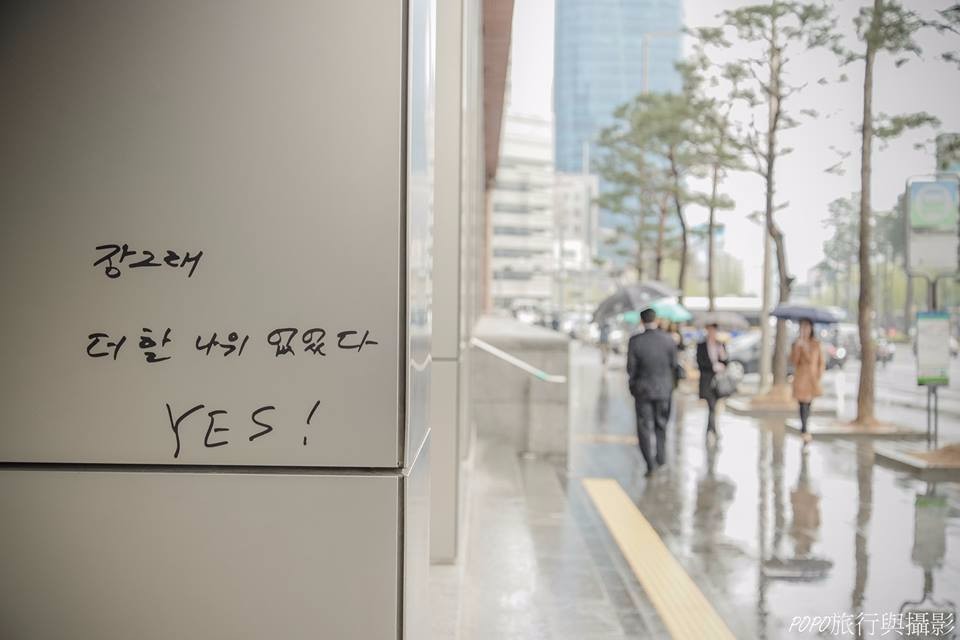 장그래
더할 나위 없었다
YES!
POPO旅行與攝影